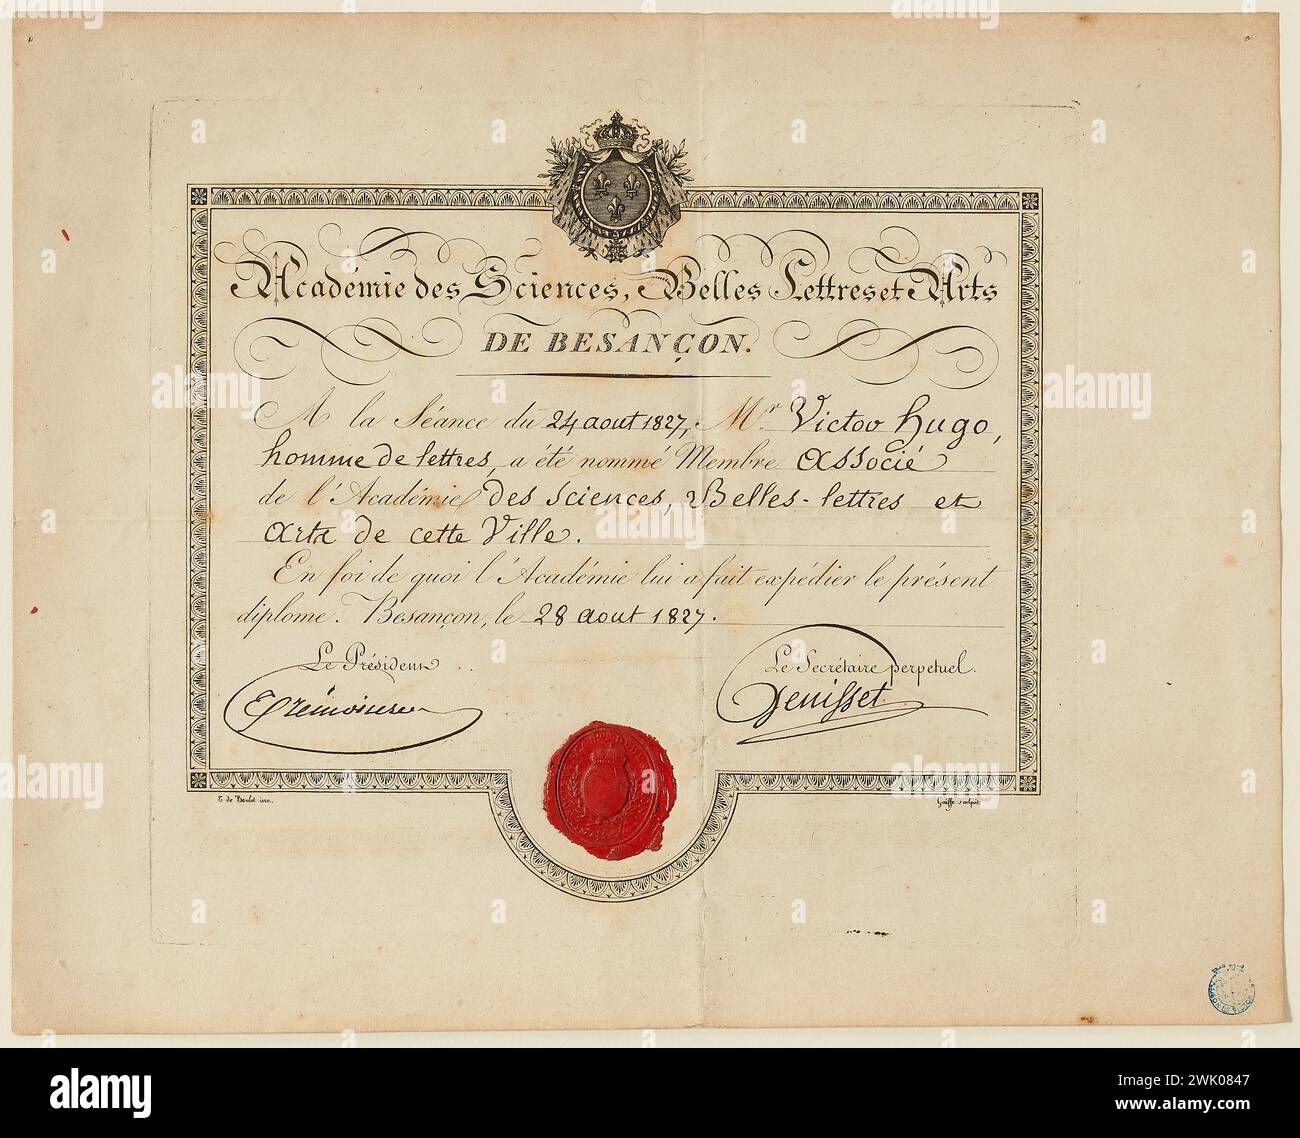 Académie des Sciences, Belles Lettres et Arts
DE BESANÇON.
A la Séance du 24 aout 1827, Mr. Victor hugo,
homme de lettres, a été nommé Membre associé
de l'Académie des sciences, Belles-lettres et
arts de cette Ville.
En foi de quoi l'Académie lui a fait expédier le présent
diplome. Besançon, le 28 aout 1827.
Le Président
Le Secrétaire perpetuel.
Genisset
alamy
www.alamy.com
Image ID: 2WK0847